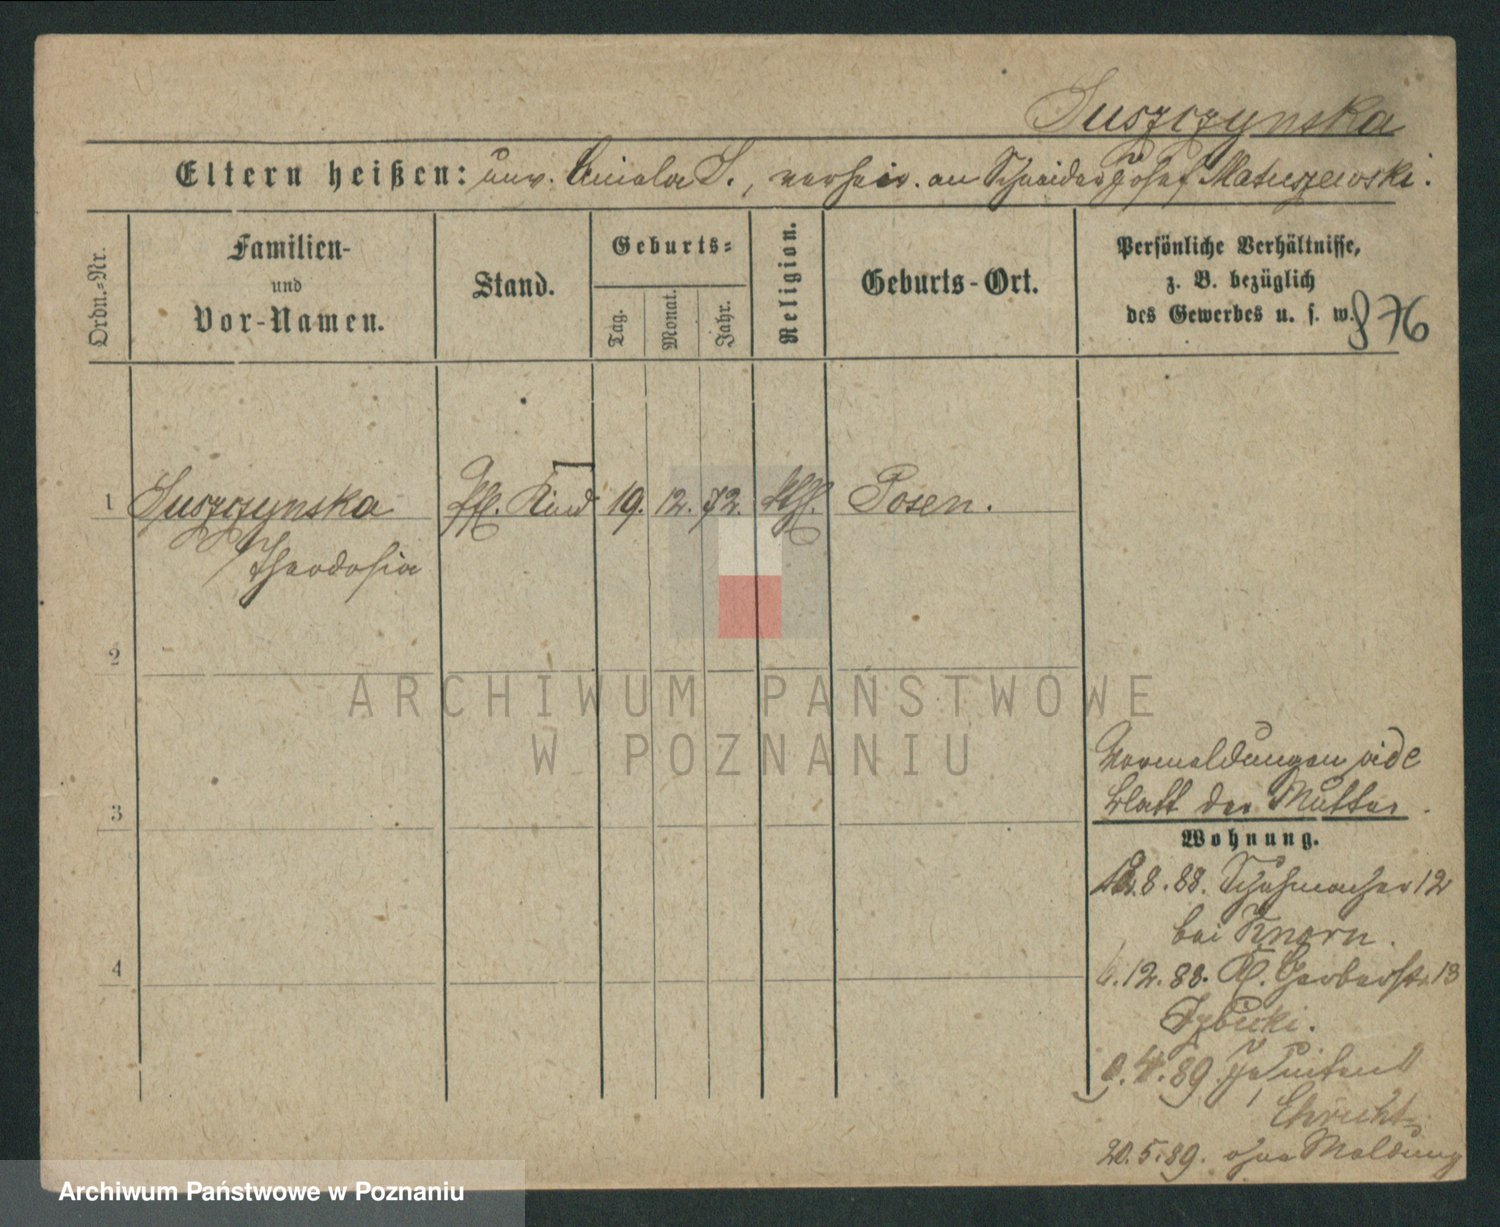 Suszczynska
Eltern heißen: unv. Aniela S., verheir. an Schneider Josef Matuszewski.
Ordn.-Nr.
Familien-
und
Vor-Namen.
Stand.
Geburts-
Tag.
Monat.
Jahr.
Religion.
Geburts-Ort.
Persönliche Verhältnisse,
z. B. bezüglich
des Gewerbes u. s. w.
876
1 Suszczynska Kind 19. 12. 72. kth. Posen.
Theodosia
2
3
4
ARCHIWUM PAŃSTWOWE
W POZNANIU
Vormeldungen vide
Blatt der Mutter.
Wohnung.
8.88. Schuhmacher 12
bei Knorn.
12.88. Kl. Gerberstr. 13
4.89
20.5.89. ohne Meldung
Archiwum Państwowe w Poznaniu